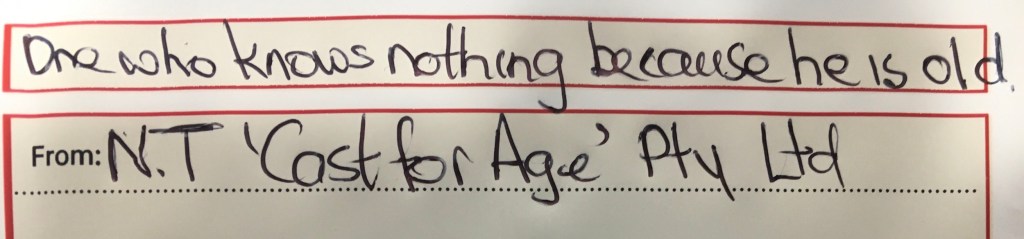 One who knows nothing because he is old.
From: N.T 'Cast for Age' Pty Ltd